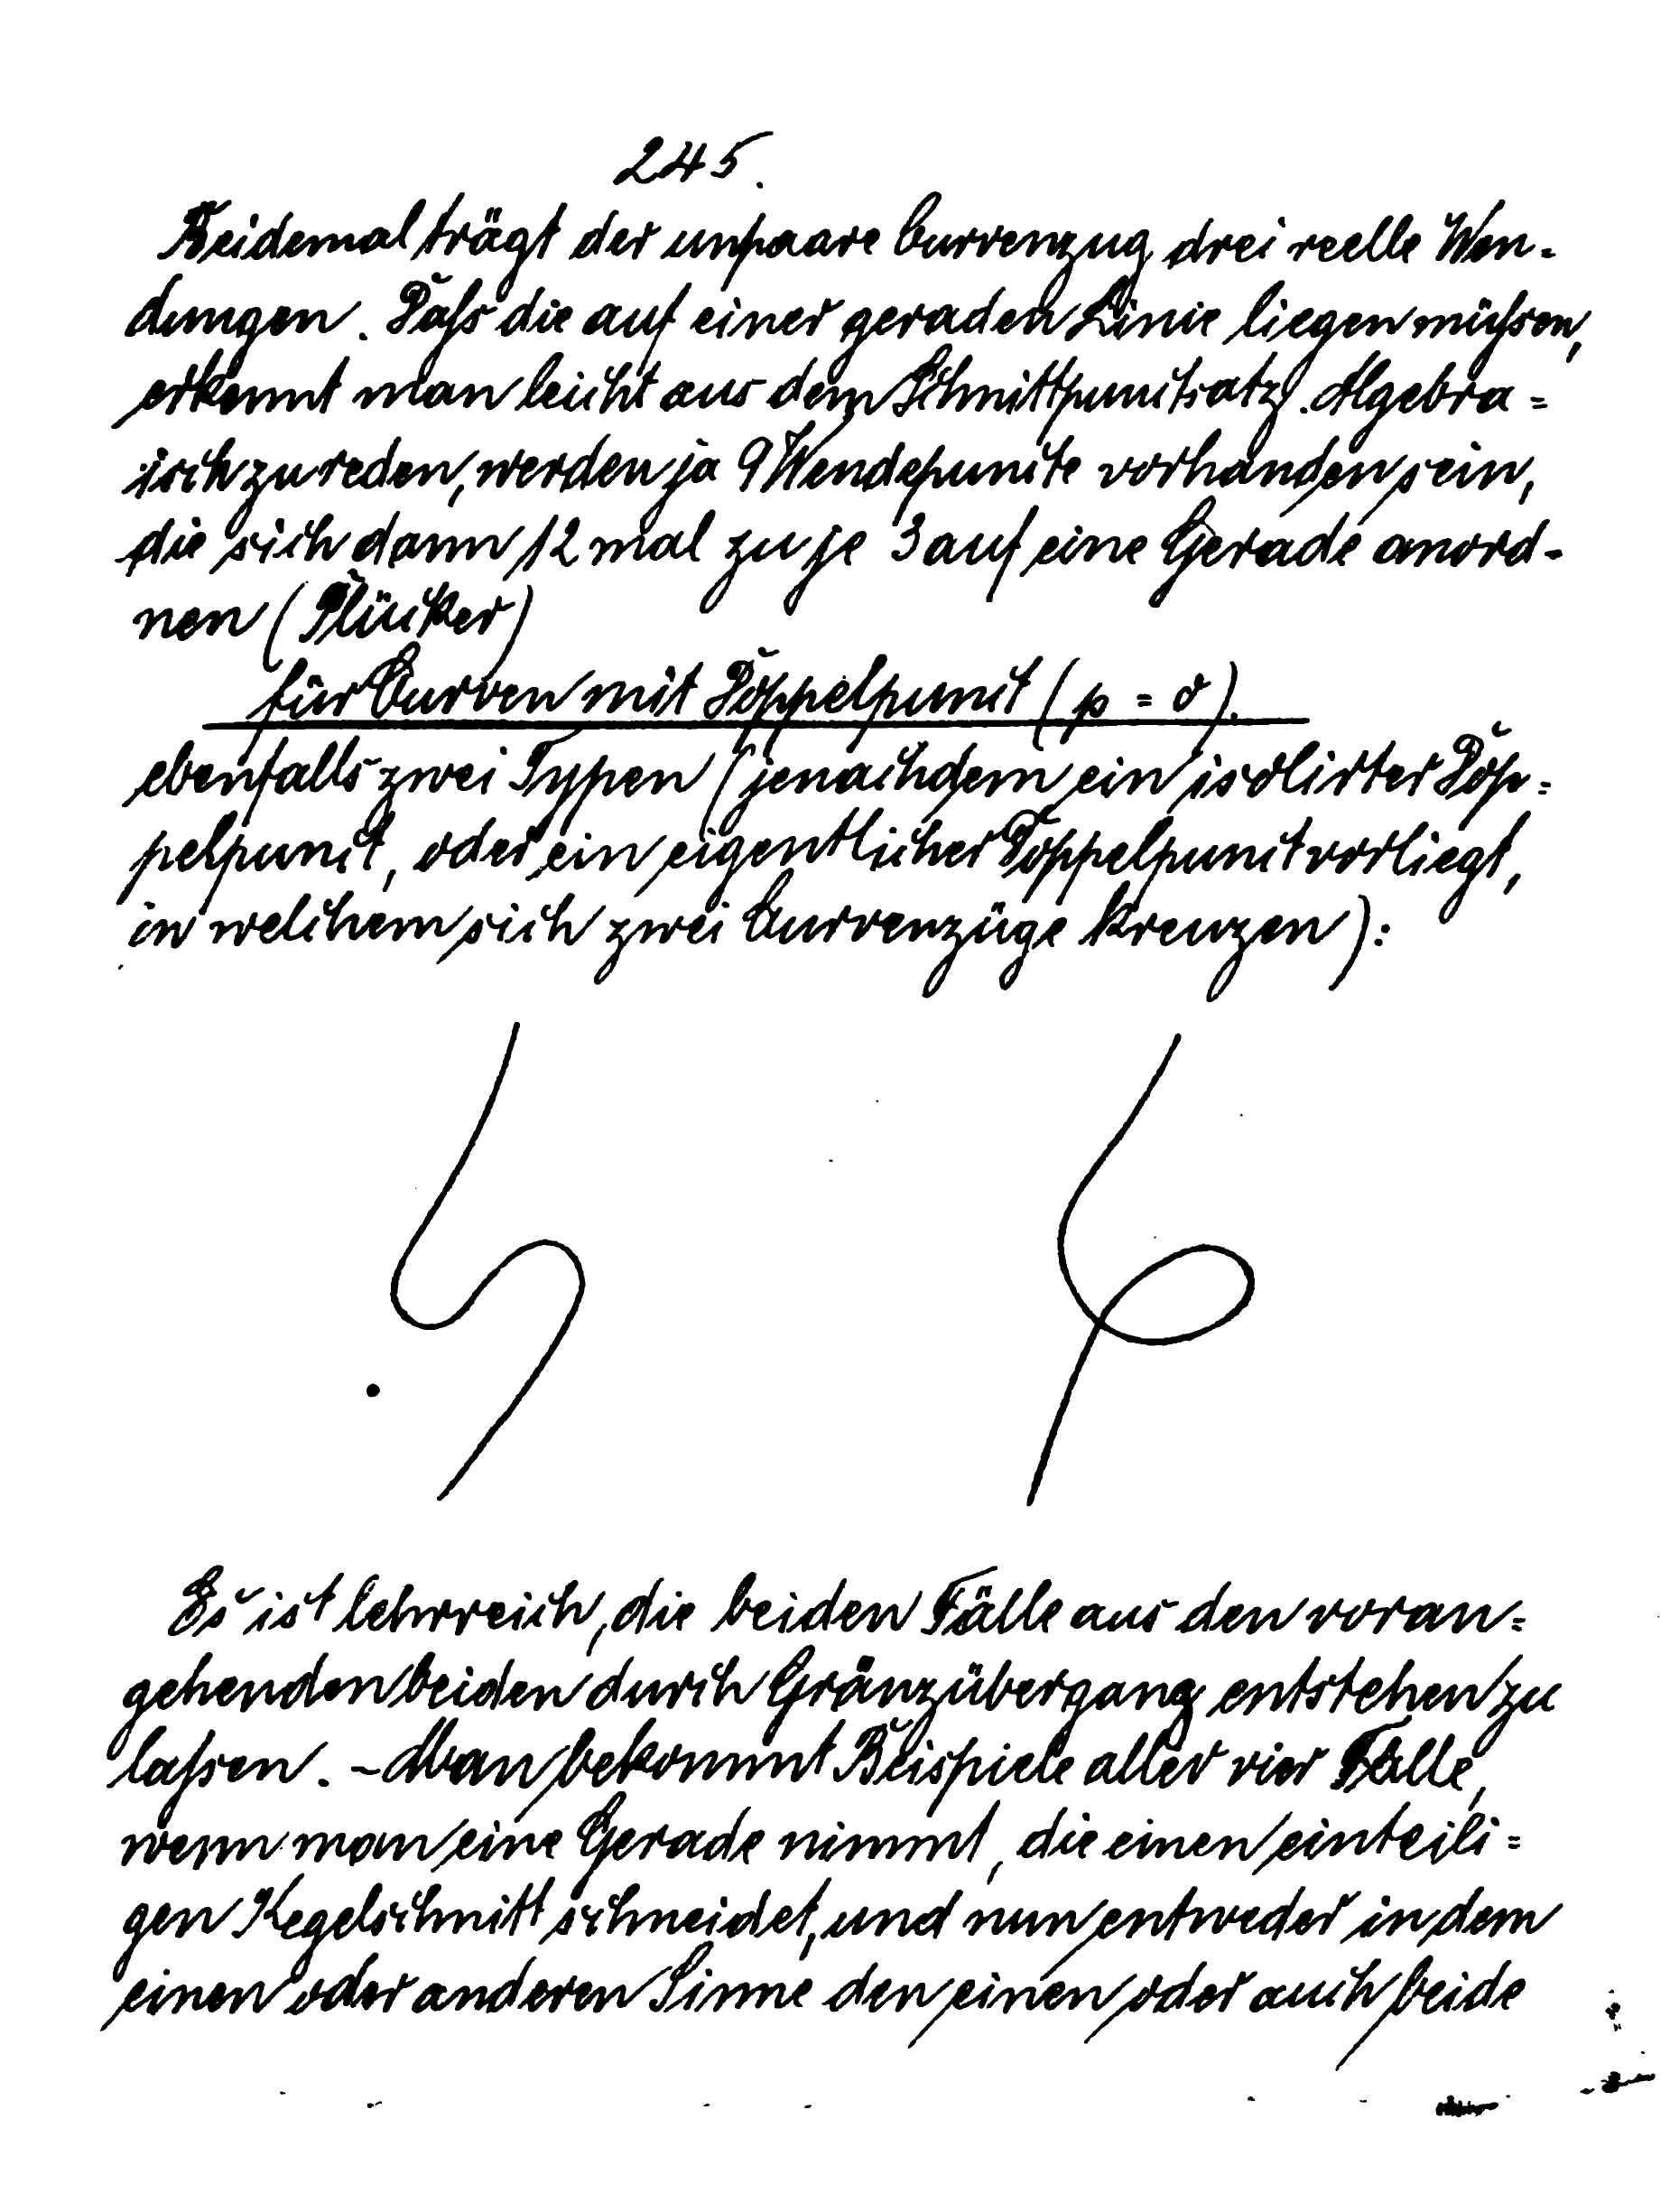 245.
Beidemal trägt der unpaare Curvenzug drei reelle Wen-
dungen. Daſs die auf einer geraden Linie liegen müſsen,
erkennt man leicht aus dem Schnittpunctsatz. Algebra-
isch zu reden, werden ja 9 Wendepuncte vorhanden sein,
die sich dann 12 mal zu je 3 auf eine Gerade anord-
nen (Plücker)
für Curven mit Doppelpunct (p = 0).
ebenfalls zwei Typen (jenachdem ein isolirter Dop-
pelpunct, oder ein eigentlicher Doppelpunct vorliegt,
in welchem sich zwei Curvenzüge kreuzen):
Es ist lehrreich, die beiden Fälle aus den voran-
gehenden beiden durch Gränzübergang entstehen zu
laſsen. - Man bekommt Beispiele aller vier Fälle,
wenn man eine Gerade nimmt, die einen einteili-
gen Kegelschnitt schneidet, und nun entweder in dem
einen oder anderen Sinne den einen oder auch beide